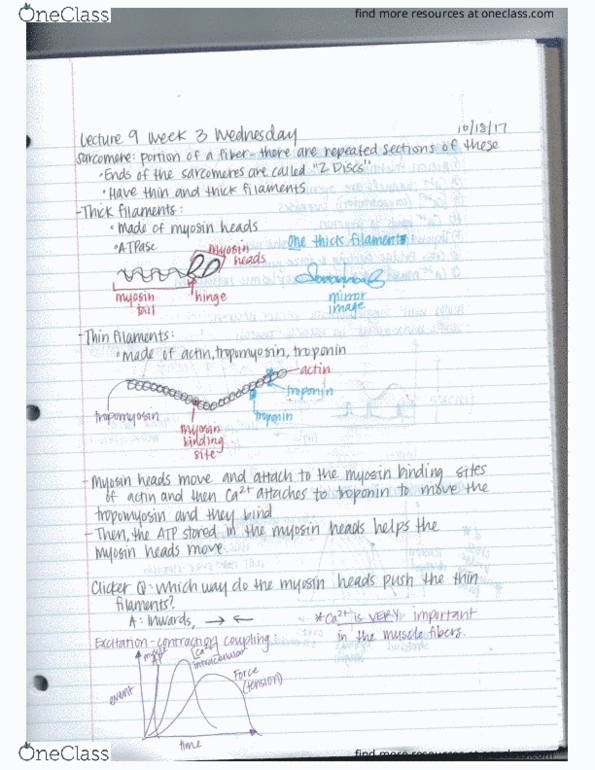 OneClass
find more resources at oneclass.com
Lecture 9 Week 3 Wednesday
10/18/17
Sarcomere: portion of a fiber - there are repeated sections of these
• Ends of the sarcomeres are called "Z Discs"
• Have thin and thick filaments
- Thick filaments:
• Made of myosin heads
• ATPase
myosin heads
myosin tail
hinge
One thick filament
mirror image
- Thin filaments:
• made of actin, tropomyosin, troponin
actin
troponin
tropomyosan
troponin
myosin binding site
- Myosin heads move and attach to the myosin binding sites
of actin and then Ca2+ attaches to troponin to move the
tropomyosin and they bind
- Then, the ATP stored in the myosin heads helps the
myosin heads move
Clicker Q: which way do the myosin heads push the thin
filaments?
A: Inwards, → ←
*Ca2+ is VERY important
in the muscle fibers.
Excitation-contraction coupling:
muscle AP
[Ca2+] intracellular
Force (tension)
event
time
OneClass
find more resources at oneclass.com